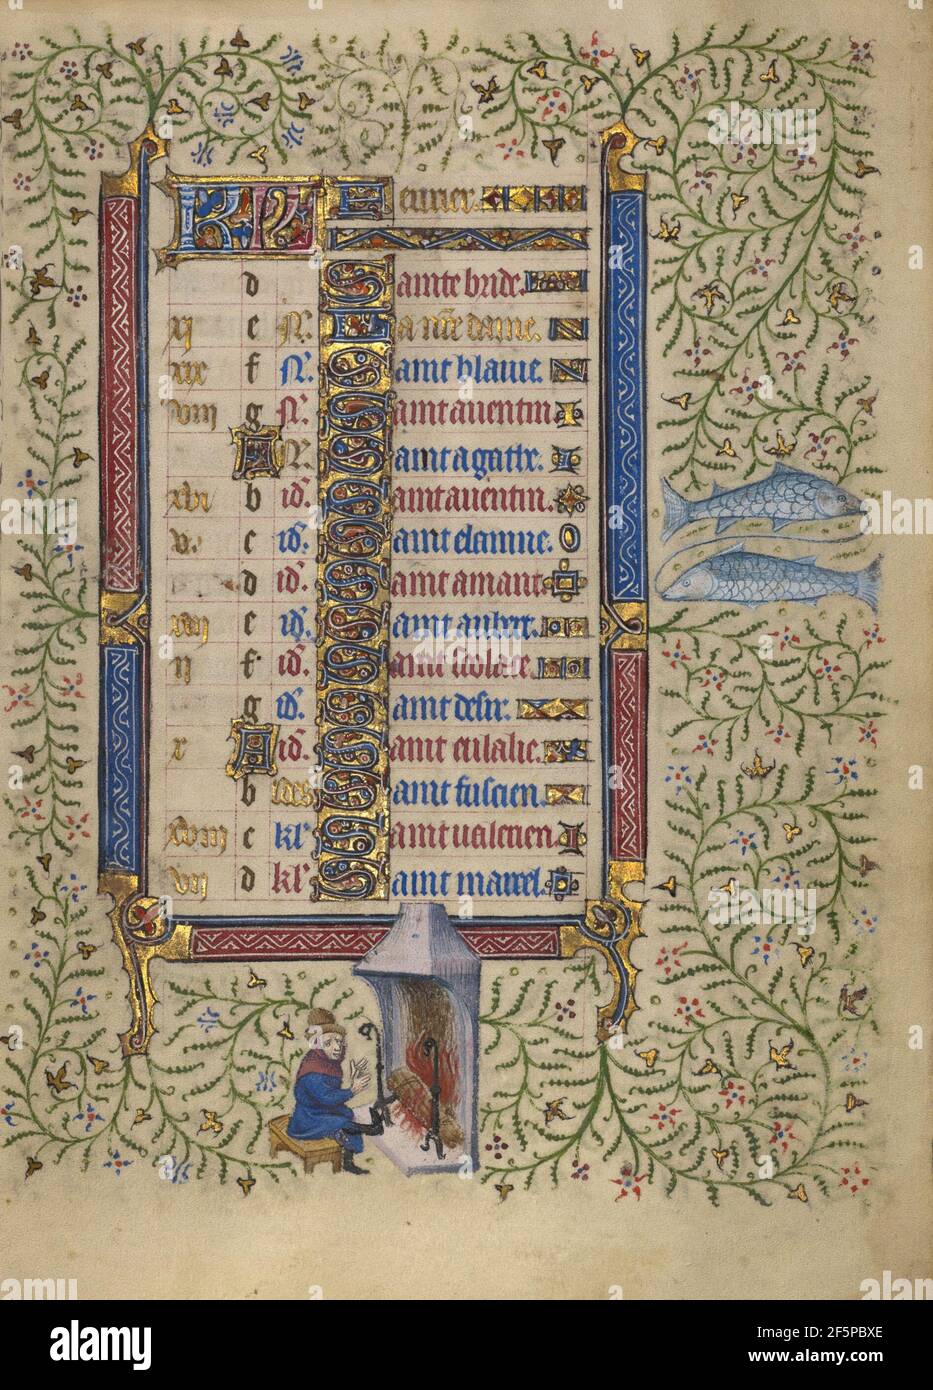 KL Feurier.
d Sainte bride.
xi e N. La nre dame.
xix f N. Saint blaiue.
viii g N. Saint auentin
A N. Saint agathe.
xvi b id. Saint auentin.
v. c id. Saint
d id. Saint amant
e id. Saint aubert.
ii f. id. Saint scolace.
g id. Saint desir.
x A id. Saint eulalie.
b ides Saint fuscien.
xviii c kl. Saint valerien.
vii d kl. Saint marcel.
alamy
Image ID: 2F5PBXE
www.alamy.com